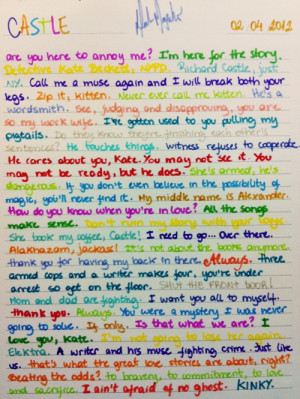 CASTLE 02/04/2012
are you here to annoy me? I'm here for the story.
Detective Kate Beckett, NYPD. Richard Castle, just
NY. Call me a muse again and I will break both your
legs. Zip it, kitten. Never ever call me kitten. He's a
wordsmith. See, judging and disapproving, you are
so my work wife. I've gotten used to you pulling my
pigtails. Do they know they're finishing each other's
sentences? He touches things. witness refuses to cooperate.
He cares about you, Kate. You may not see it. You
may not be ready, but he does. She's armed, he's
dangerous. If you don't even believe in the possibility of
magic, you'll never find it. My middle name is Alexander.
How do you know when you're in love? All the songs
make sense. Don't ruin my story with your logic
She took my coffee, Castle! I need to go... Over there.
Alakhazam, jackass! It's not about the books anymore.
thank you for having my back in there. Always. Three
armed cops and a writer makes four, you're under
arrest so get on the floor. SHUT THE FRONT DOOR!
Mom and dad are fighting. I want you all to myself.
thank you. Always. You were a mystery I was never
going to solve. If only. Is that what we are? I
love you, Kate. I'm not going to lose her again.
Elektra. A writer and his muse fighting crime. Just live
us. that's what the great love stories are about, right?
Beating the odds? to bravery, to commitment, to love
and sacrifice. I ain't afraid of no ghost. KINKY.